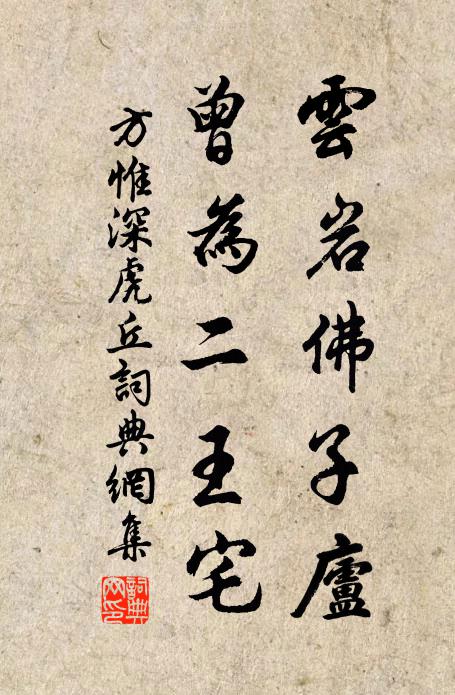 雲岩佛子廬
曾為二王宅
方惟深虎丘詞典網集
詞典網印